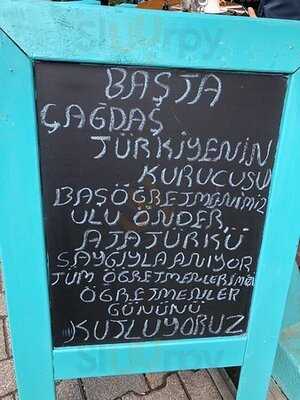 BAŞTA
ÇAĞDAŞ
TÜRKİYENİN
KURUCUSU
BAŞÖĞRETMENİMİZ
ULU ÖNDER
ATATÜRKÜ
SAYGIYLA ANIYOR
TÜM ÖĞRETMENLERİMİZİ
ÖĞRETMENLER
GÜNÜNÜ
KUTLUYORUZ